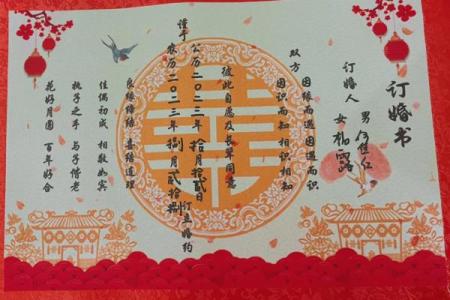 订婚书
订婚人
男何焦红
女杨露
双方因缘而遇因遇而识
因识而知相识相知
彼此自愿及长辈同意
谨于公历二〇二三年拾月拾贰日
农历二〇二三年捌月贰拾捌订立婚约
良缘缔结 喜结连理
佳偶初成 相敬如宾
执子之手 与子偕老
花好月圆 百年好合